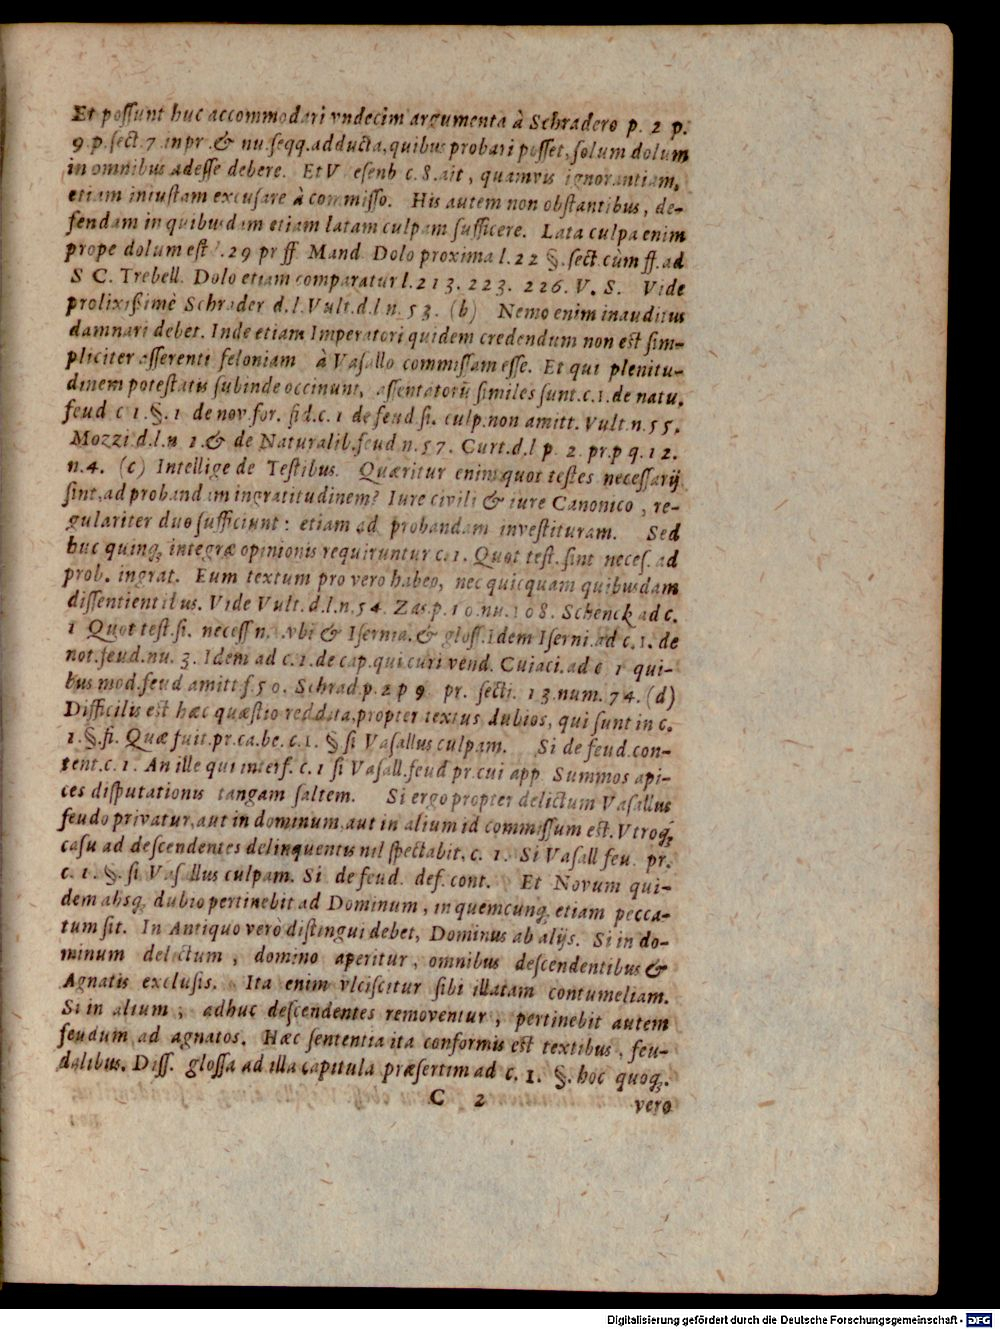 Et poſſunt huc accommodari vndecim argumenta à Schradero p. 2 p.
9. p. ſect. 7. in pr. & nu. ſeqq. adducta, quibus probari poſſet, ſolum dolum
in omnibus adeſſe debere. Et V eſenb c. 8. ait, quamvis ignorantiam,
etiam iniuſtam excuſare à commiſſo. His autem non obſtantibus, de-
fendam in quibusdam etiam latam culpam ſufficere. Lata culpa enim
prope dolum eſt l. 29 pr ff Mand. Dolo proxima l. 22 §. ſect. cùm ff. ad
S C. Trebell. Dolo etiam comparatur l. 213. 223. 226. V. S. Vide
prolixißimè Schrader d. l. Vult. d. l n. 53. (b) Nemo enim inauditus
damnari debet. Inde etiam Imperatori quidem credendum non eſt ſim-
pliciter aſſerenti feloniam à Vaſallo commiſſam eſſe. Et qui plenitu-
dinem poteſtatis ſubinde occinunt, aſſentatorū ſimiles ſunt. c. 1. de natu.
feud c 1. §. 1 de nov. for. fid. c. 1 de feud. ſi. culp. non amitt. Vult. n. 55.
Mozzi. d. l. n 1. & de Naturalib. feud n. 57. Curt. d. l p. 2. pr. p q. 12.
n. 4. (c) Intellige de Teſtibus. Quæritur enim quot teſtes neceſſarij
ſint, ad probandam ingratitudinem? Iure civili & iure Canonico, re-
gulariter duo ſufficiunt: etiam ad probandam inveſtituram. Sed
huc quinq; integræ opinionis requiruntur c. 1. Quot teſt. ſint neceſ. ad
prob. ingrat. Eum textum pro vero habeo, nec quicquam quibusdam
diſſentientibus. Vide Vult. d. l. n. 54. Zas. p. 10. nu. 108. Schenck ad c.
1 Quot teſt. ſi. neceſſ n. vbi & Iſernia. & gloſſ. Idem Iſerni. ad c. 1. de
not. feud. nu. 3. Idem ad c. 1. de cap. qui curi vend. Cuiaci. ad c 1 qui-
bus mod. feud amitt f. 50. Schrad. p. 2 p 9. pr. ſecti. 13. num. 74. (d)
Difficilis eſt hæc quæſtio reddita, propter textus dubios, qui ſunt in c.
1. §. fi. Quæ fuit. pr. ca. be. c. 1. § ſi Vaſallus culpam. Si de feud. con-
tent. c. 1. An ille qui interf. c. 1 ſi Vaſall. feud pr. cui app. Summos api-
ces diſputationis tangam ſaltem. Si ergo propter delictum Vaſallus
feudo privatur, aut in dominum, aut in alium id commiſſum eſt. Vtroq́;
caſu ad deſcendentes delinquentis nil ſpectabit. c. 1. Si Vaſall feu. pr.
c. 1. §. ſi Vaſallus culpam. Si de feud. def. cont. Et Novum qui-
dem absq; dubio pertinebit ad Dominum, in quemcunq; etiam pecca-
tum ſit. In Antiquo verò diſtingui debet, Dominus ab alijs. Si in do-
minum delictum, domino aperitur, omnibus deſcendentibus &
Agnatis excluſis. Ita enim vlciſcitur ſibi illatam contumeliam.
Si in alium, adhuc deſcendentes removentur, pertinebit autem
feudum ad agnatos. Hæc ſententia ita conformis eſt textibus, feu-
dalibus. Diſſ. gloſſa ad illa capitula præſertim ad c. 1. §. hoc quoq;
C 2
vero
Digitalisierung gefördert durch die Deutsche Forschungsgemeinschaft - DFG